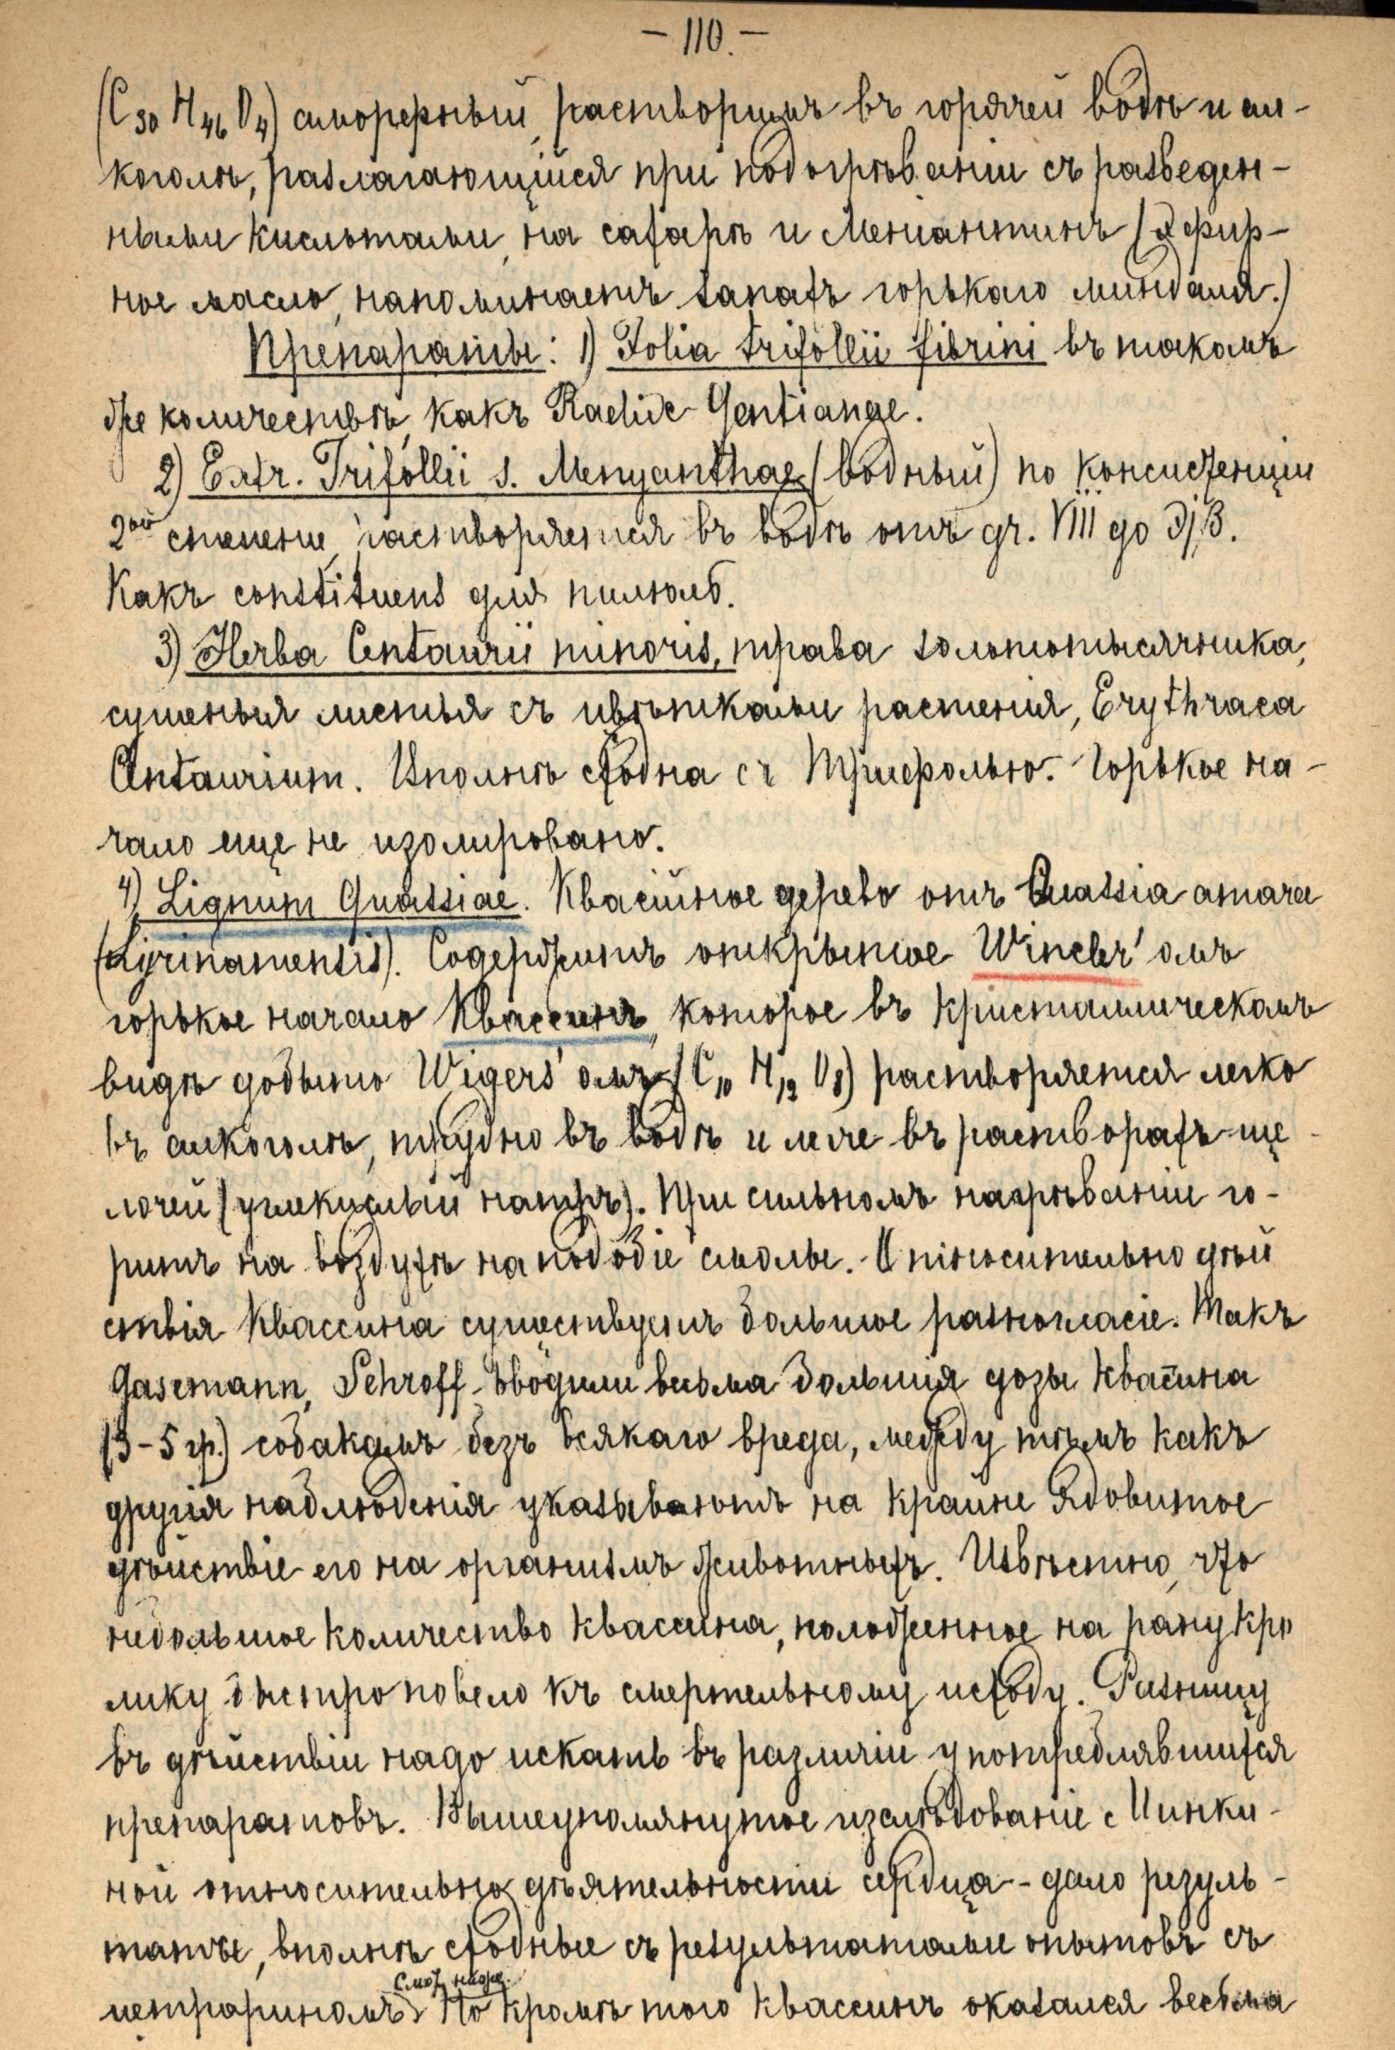 — 110. —
(C30 H46 O4) аморфный, растворимъ въ горячей водѣ и ал-
коголѣ, разлагающійся при подогрѣваніи съ разведен-
ными кислотами, на сахаръ и Меніантинъ (эфир-
ное масло, напоминаетъ запахъ горькаго миндаля.)
Препараты: 1) Folia trifollii fibrini въ такомъ
же количествѣ, какъ Radix Gentianae.
2) Extr. Trifollii s. Menyanthae (водный) по консистенціи
2ой степени, растворяется въ водѣ отъ gr. VIII до
Какъ constituens для пилюль.
3) Herba Centaurii minoris, трава золототысячника,
сушеныя листья съ цвѣтками растенія, Erythraea
Centaurium. Вполнѣ сходна съ Трифолью. Горькое на-
чало еще не изолировано.
4) Lignum Quassiae. Квассійное дерево отъ Quassia amara
Содержитъ открытое Wincler'омъ
горькое начало Квассинъ, которое въ кристаллическомъ
видѣ добыто Wigers'омъ (C10 H12 O3) растворяется легко
въ алкоголѣ, трудно въ водѣ и легче въ растворахъ ще-
лочей (углекислый натръ). При сильномъ нагрѣваніи го-
ритъ на воздухѣ на подобіе смолы. Относительно дѣй
ствія Квассина существуетъ большое разногласіе. Такъ
Schroff вводили весьма большія дозы квассина
(3-5 гр.) собакамъ безъ всякаго вреда, между тѣмъ какъ
другія наблюденія указываютъ на крайне ядовитое
дѣйствіе его на организмъ животныхъ. Извѣстно, что
небольшое количество квассина, положенное на рану кро
лику быстро повело къ смертельному исходу. Разницу
въ дѣйствіи надо искать въ различіи употреблявшихся
препаратовъ. Вышеупомянутое изслѣдованіе с
ной относительно дѣятельности сердца - дало резуль-
таты, вполнѣ сходные съ результатами опытовъ съ
цетрариномъ. Но кромѣ того квассинъ оказался весьма